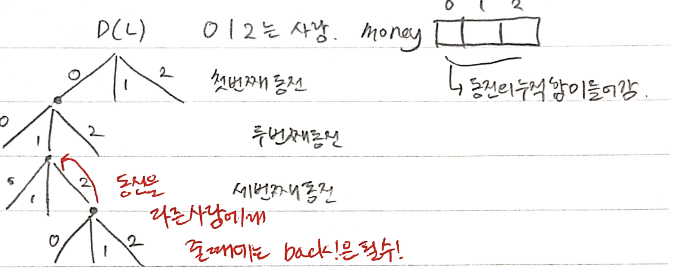 D(L) 0 1 2는 사람. money 0 1 2
0 1 2 첫번째동전 ↳ 동전의누적합이들어감.
0 1 2 두번째동전
0 1 2 세번째동전
동전을
다른사람에게
줄때에는 back!은필수!
0 1 2